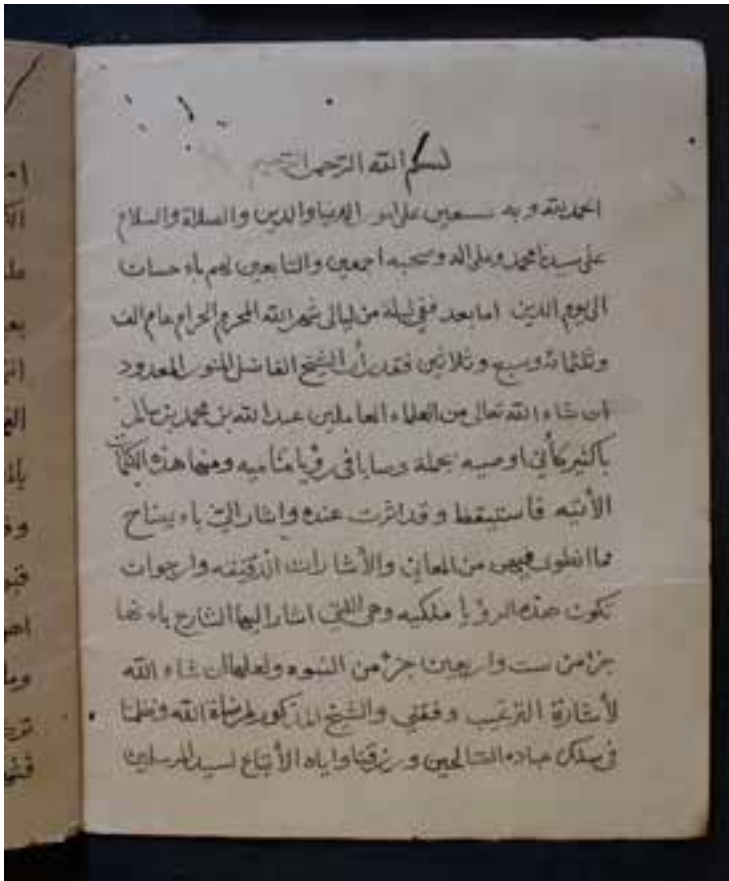 بسم الله الرحمن الرحيم
الحمد لله وبه نستعين على امور الدنيا والدين والصلاة والسلام
على سيدنا محمد وعلى اله وصحبه اجمعين والتابعين لهم باءحسان
الى يوم الدين اما بعد ففي ليلة من ليالى شهر الله المحرم الحرام عام الف
وثلثمائة وسبع وثلاثين فقد رأى الشيخ الفاضل المنور المعدود
ان شاء الله تعالى من العلماء العاملين عبد الله بن محمد بن سالم
باكثير كأني اوصيه بجملة وصايا في رؤيا مناميه ومنها هذه الكلمات
الأتيه فاستيقظ وقد اثرت عنده واشار الي باءيضاح
مما انطوى فيهن من المعاني والأشارات الدقيقه وارجوا ان
تكون هذه الرؤيا ملكيه وهي اللتي اشار اليها الشارح باءنها
جزء من ست واربعين جزء من النبوه ولعلها ان شاء الله
لأشارة الترغيب وفقني والشيخ المذكور لمرضاة الله ونظمنا
في سلك عباده الصالحين ورزقنا واياه الأتباع لسيد المرسلين